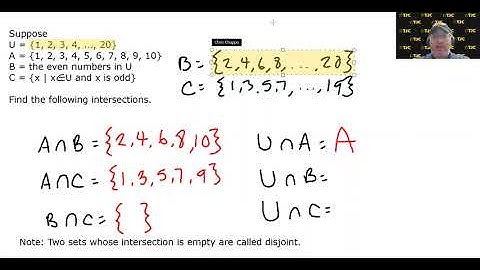 Suppose
U = {1, 2, 3, 4, ..., 20}
A = {1, 2, 3, 4, 5, 6, 7, 8, 9, 10}
B = the even numbers in U
C = {x | x∈U and x is odd}
Find the following intersections.
B = {2,4,6,8, ..., 20}
C = {1,3,5,7, ..., 19}
A∩B = {2,4,6,8,10}
A∩C = {1,3,5,7,9}
B∩C = { }
U∩A = A
U∩B =
U∩C =
Note: Two sets whose intersection is empty are called disjoint.